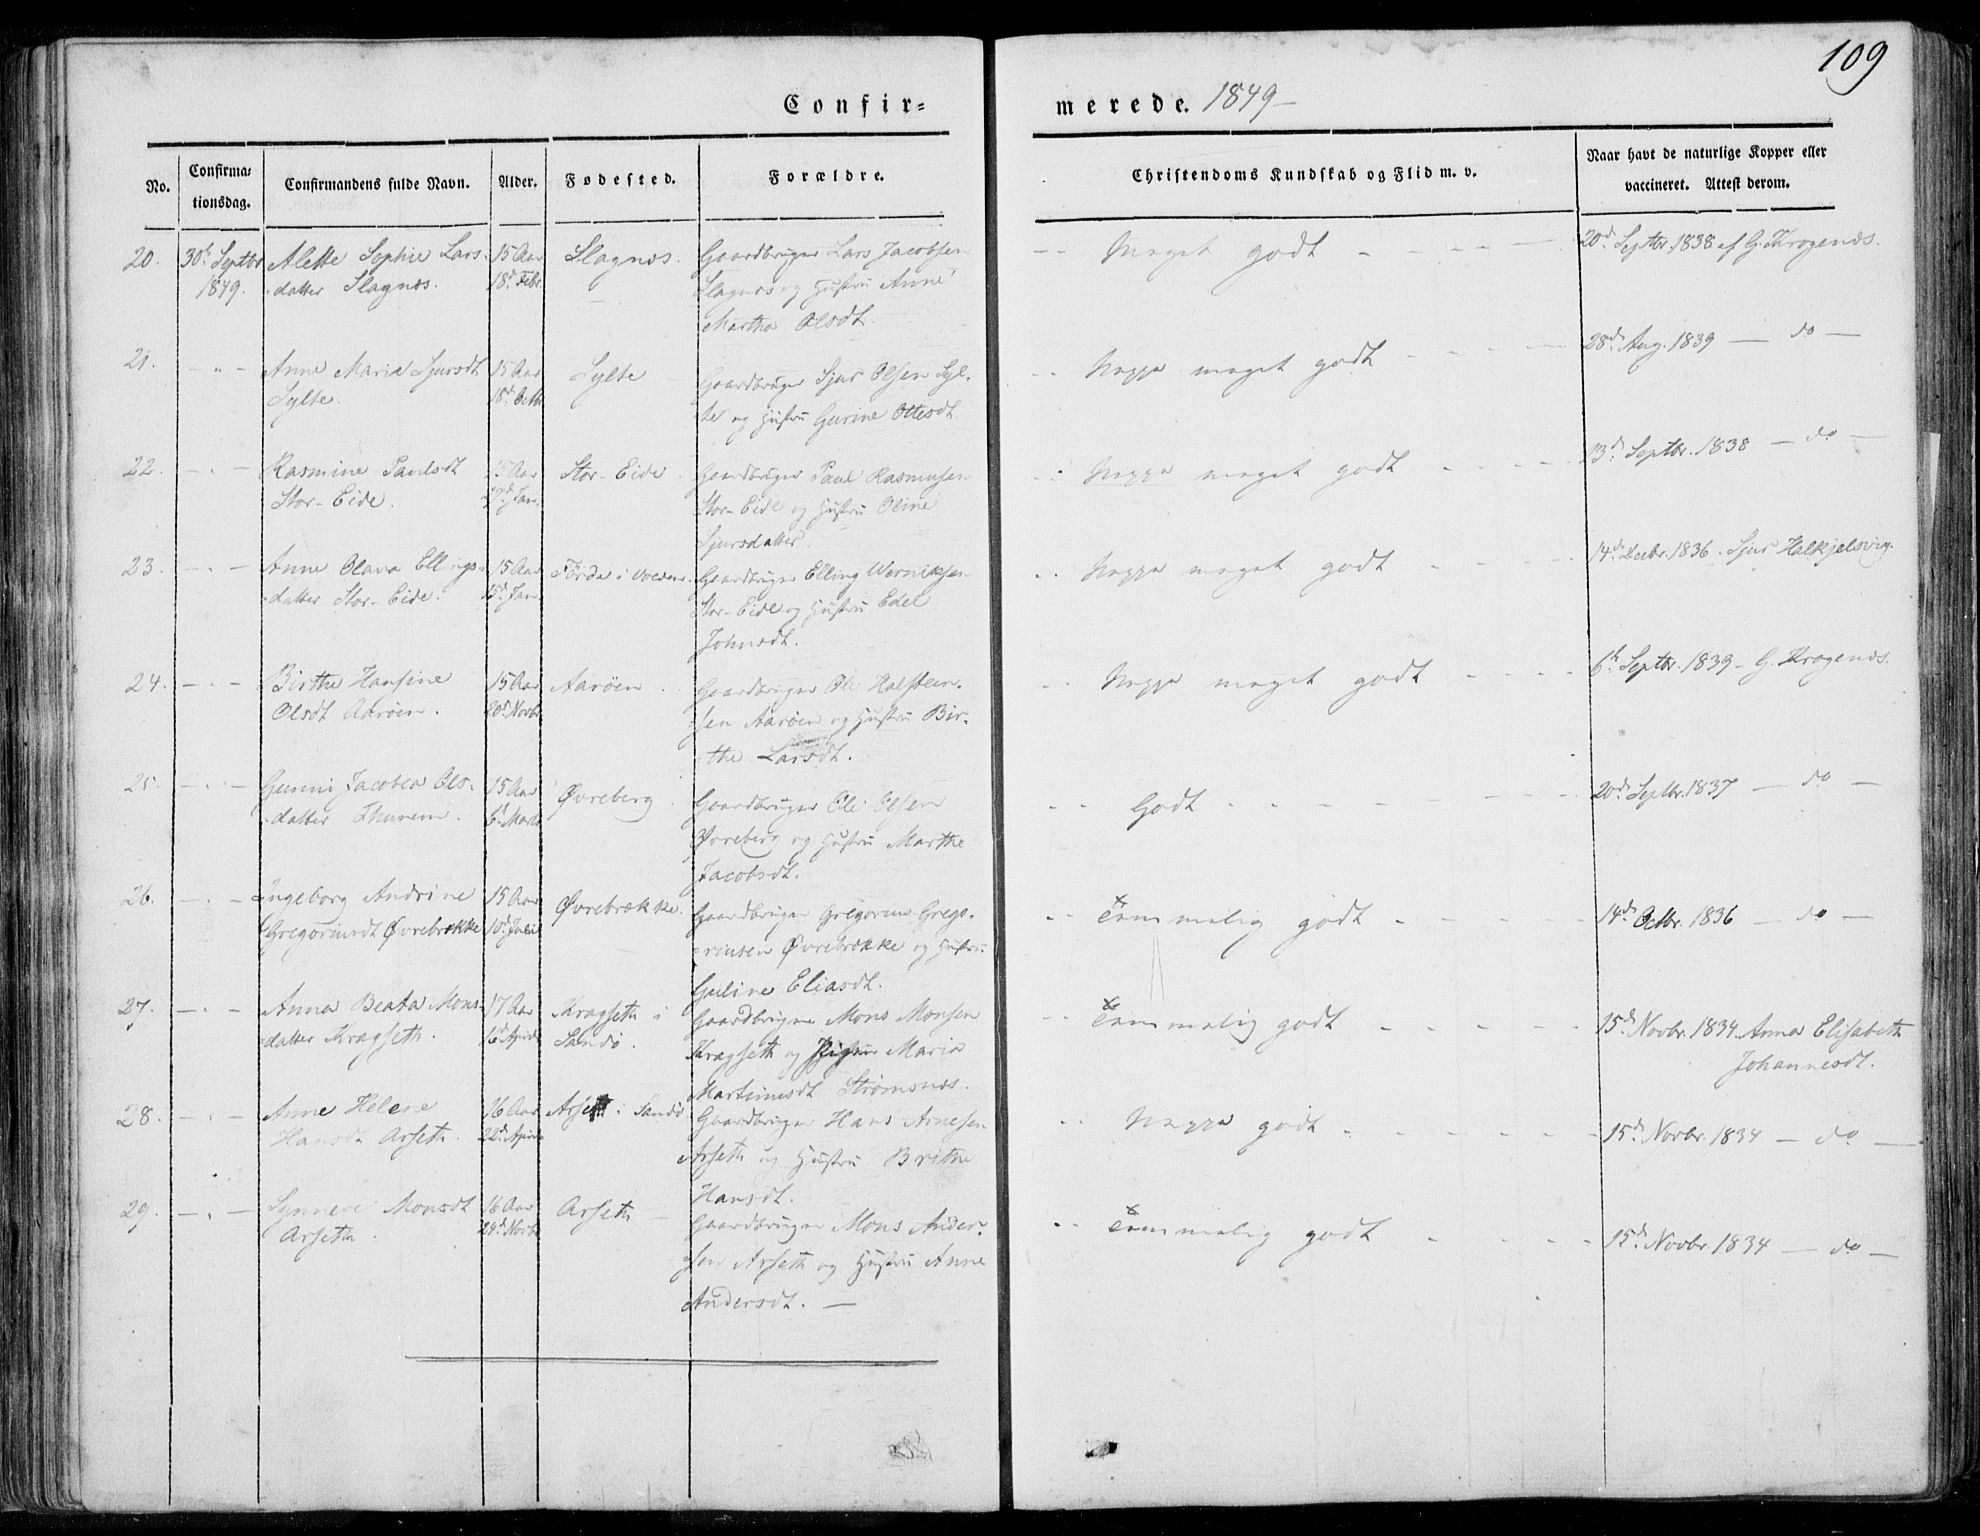 109
Confir=
merede. 1849 –
No.
Confirma=
tionsdag.
Confirmandens fulde Navn.
Alder.
Fødested.
Forældre.
Christendoms Kundskab og Flid m. v.
Naar havt de naturlige Kopper eller
vaccineret. Attest derom.
20. 30te Septbr Alette Sophie Lars- 15 Aar Slagnæs. Gaardbruger Lars Jacobsen Meget godt 20d. Septbr. 1838 af G. Krogenæs.
1849. datter Slagnæs. 18d. Febr. Slagnæs og Hustru Anne
Martha Olsdt.
21. – " – Anne Maria Sjursdt 15 Aar Sylte Gaardbruger Sjur Olsen Syl- meget godt 28d. Aug. 1839 — do —
Sylte. 18d. Octbr te og Hustru Gurine Ottesdt.
22. – " – Rasmine Paulsdt 15 Aar Stor-Eide. Gaardbruger Paul Rasmusen meget godt 13d. Septbr. 1838 — do —
Stor-Eide. Jan. Stor-Eide og Hustru Oline
Sjursdatter.
23. – " – Anne Olava Ellings- 15 Aar Förde i Volden Gaardbruger Elling Werniksen meget godt 14d. Decbr. 1836. Sjur Halkjelsvig.
datter Stor-Eide. Jan. Stor-Eide og Hustru Edel
Johnsdt.
24. – " – Birthe Hansine 15 Aar Aarøen. Gaardbruger Ole Halsteen- meget godt 6te Septbr. 1839 – G. Krogenæs.
Olsdt Aarøen. 20d. Novbr sen Aarøen og Hustru Bir-
the Larsdt.
25. – " – Gunni Jacobea Ols- 15 Aar Øvreberg. Gaardbruger Ole Olsen Godt 20d. Septbr. 1837 — do —
datter 6d. Marts Øvreberg og Hustru Marthe
Jacobsdt.
26. – " – Ingeborg Andrine 15 Aar Øvrebrække. Gaardbruger Gregorius Grego- Temmelig godt 14d. Octbr. 1836 — do —
Gregoriusdt Øvrebrække 10d. Juli riusen Øvrebrække og Hustru
Guline Eliasdt.
27. – " – Anna Beata Mons- 17 Aar Kragseth i Gaardbruger Mons Monsen Temmelig godt 15d. Novbr. 1834. Anna Elisabeth
datter Kragseth. 16d. April Sandø. Kragseth og Maria Johannesdt.
Martinusdt Strømsnæs.
28. – " – Anne Helene 16 Aar Arseth i Sandø Gaardbruger Hans Arnesen godt 15d. Novbr. 1834 — do —
Hansdt Arseth. 22d. April Arseth og Hustru Brithe
Hansdt.
29. – " – Synneve Monsdt 16 Aar Arseth Gaardbruger Mons Ander- Temmelig godt 15d. Novbr. 1834 — do —
Arseth. 24d. Novbr sen Arseth og Hustru Anne
Andersdt. —